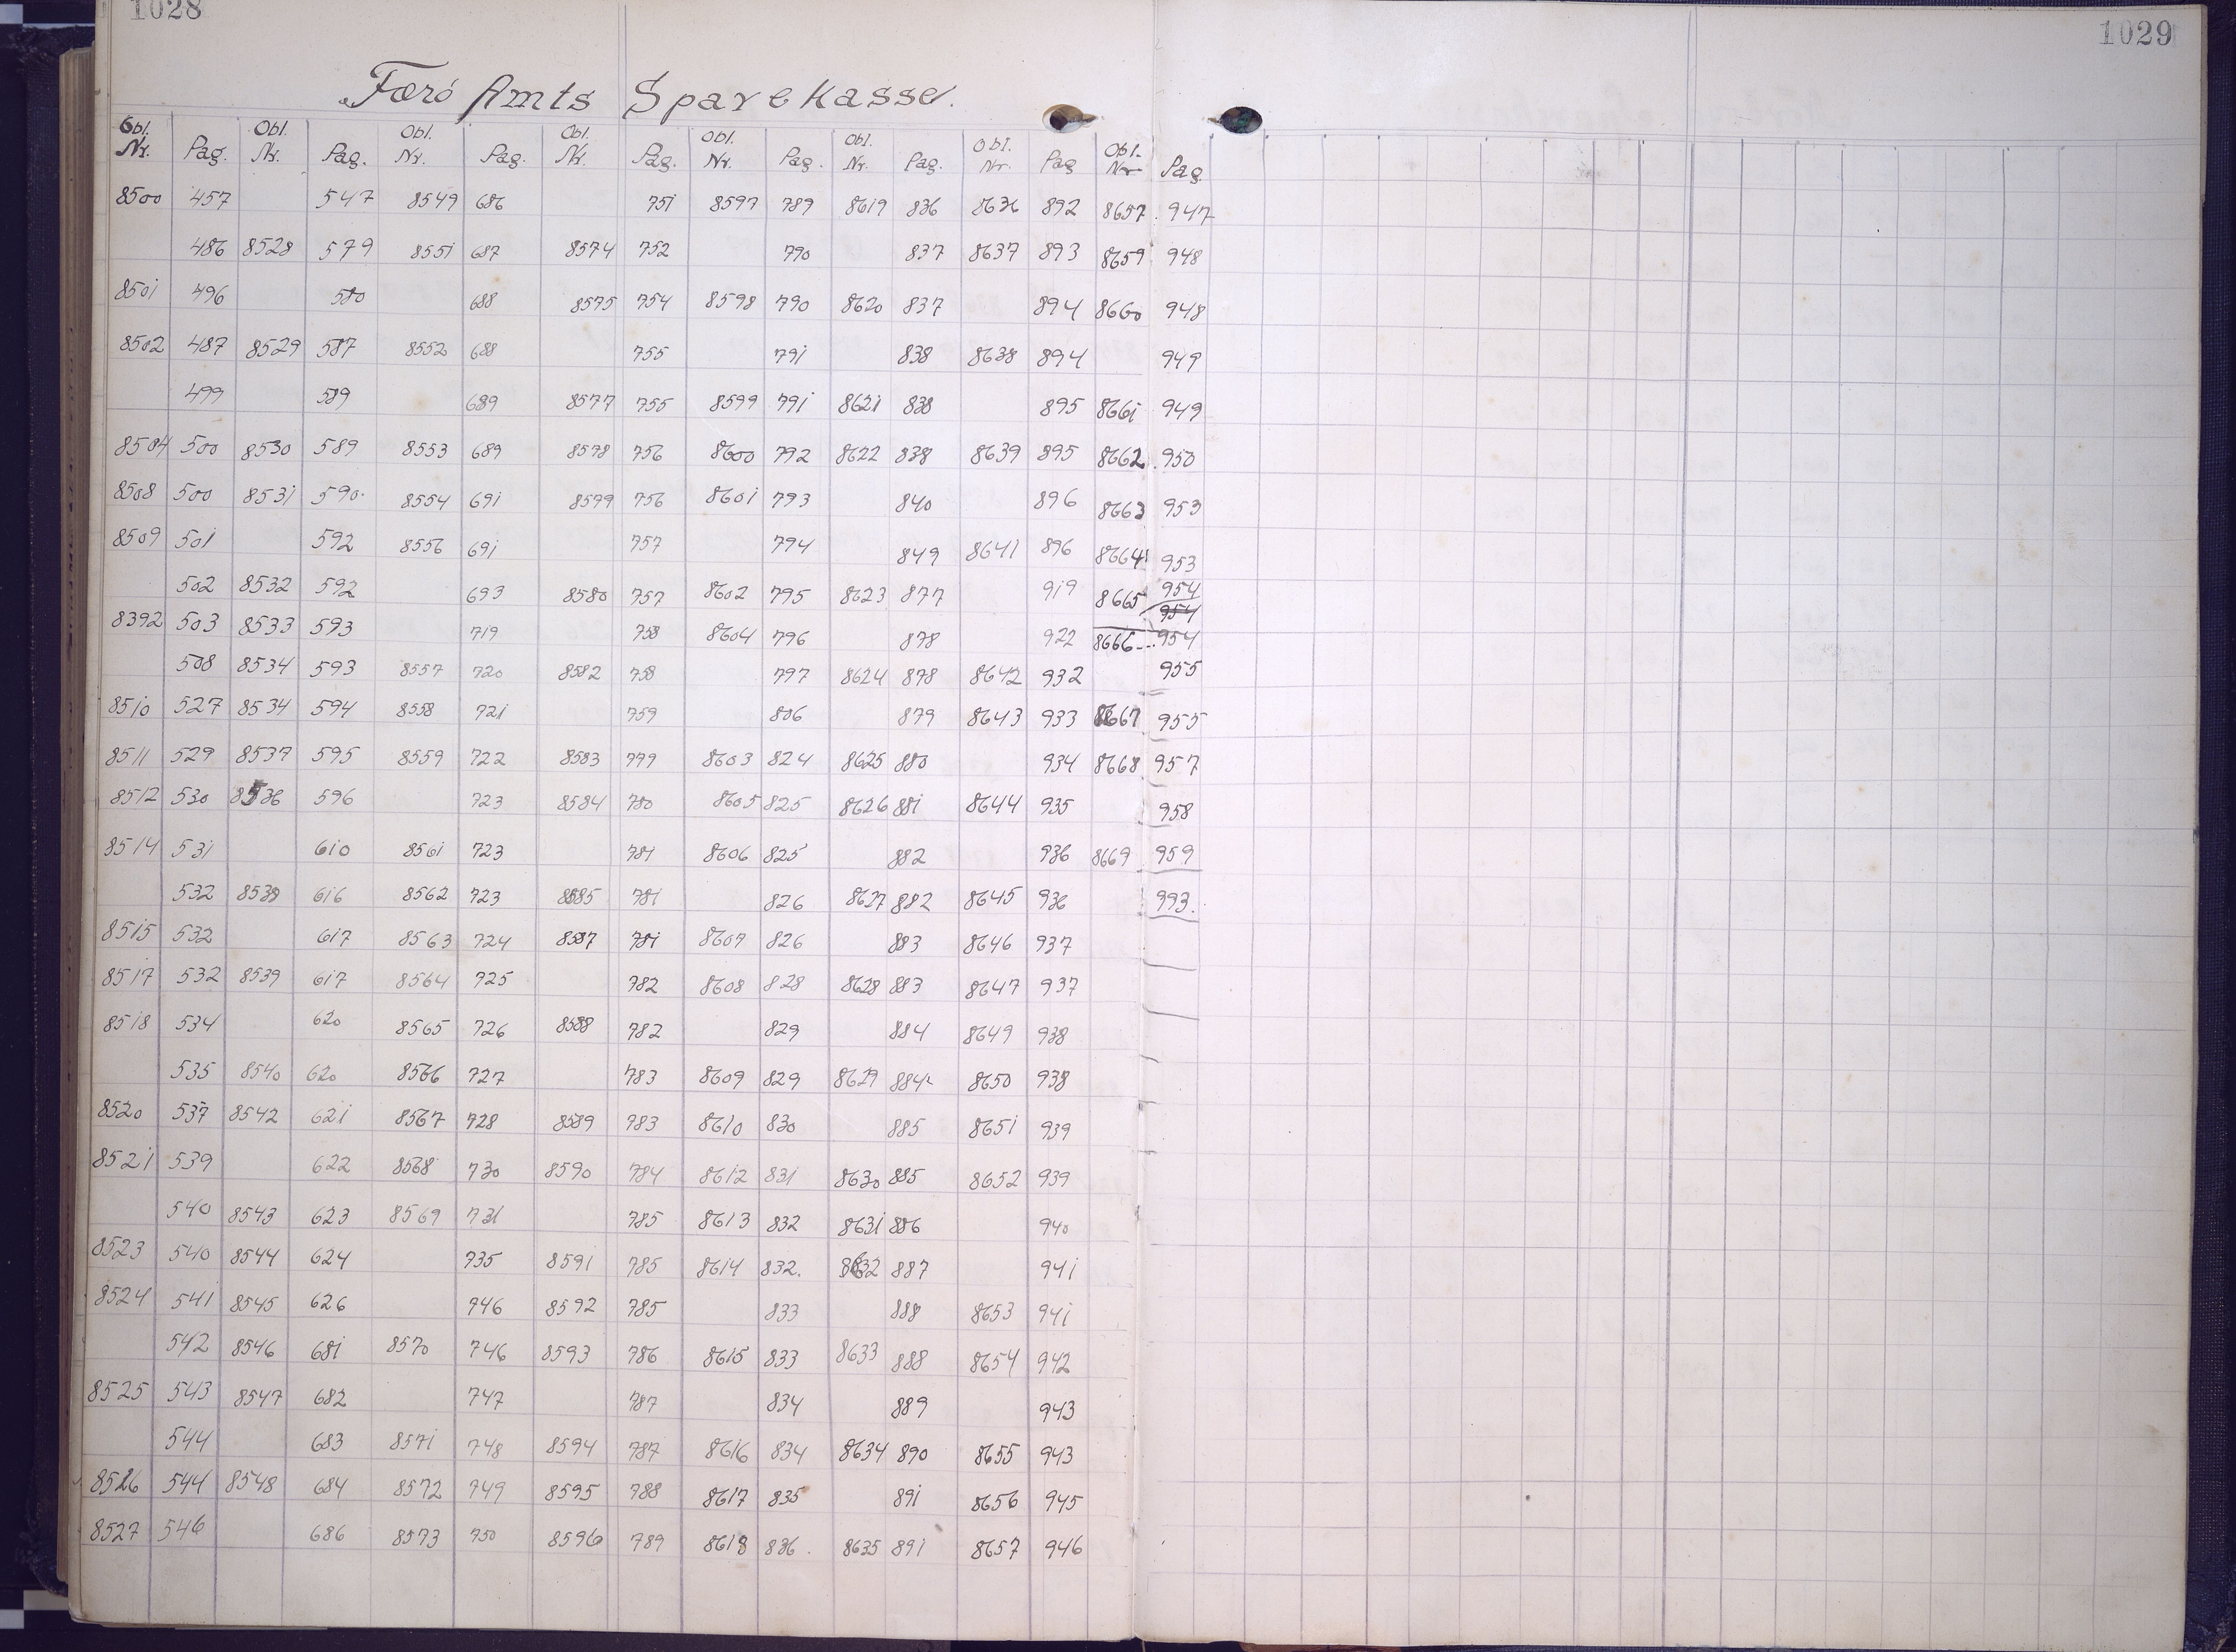 1028
1029
Færö Amts Sparekasse.
Obl. Nr. Pag. Obl. Nr. Pag. Obl. Nr. Pag. Obl. Nr. Pag. Obl. Nr. Pag. Obl. Nr. Pag. Obl. Nr. Pag Obl. Nr. Pag.
8500 457 547 8549 686 751 8597 789 8619 836 8636 892 8657 947
486 8528 579 8551 687 8574 752 790 837 8637 893 8659 948
8501 496 580 688 8575 754 8598 790 8620 837 894 8660 948
8502 487 8529 587 8552 688 755 791 838 8638 894 949
499 589 689 8577 755 8599 791 8621 838 895 8661 949
8504 500 8530 589 8553 689 8578 756 8600 792 8622 838 8639 895 8662 950
8508 500 8531 590 8554 691 8579 756 8601 793 840 896 8663 953
8509 501 592 8556 691 757 794 849 8641 896 8664 953
502 8532 592 693 8580 757 8602 795 8623 877 919 8665 954
954
8392 503 8533 593 719 758 8604 796 878 922 8666 954
508 8534 593 8557 720 8582 758 797 8624 878 8642 932 955
8510 527 8534 594 8558 721 759 806 879 8643 933 8667 955
8511 529 8537 595 8559 722 8583 779 8603 824 8625 880 934 8668 957
8512 530 8536 596 723 8584 780 8605 825 8626 881 8644 935 958
8514 531 610 8561 723 781 8606 825 882 936 8669 959
532 8538 616 8562 723 8585 781 826 8627 882 8645 936 993.
8515 532 617 8563 724 8587 781 8607 826 883 8646 937
8517 532 8539 617 8564 725 782 8608 828 8628 883 8647 937
8518 534 620 8565 726 8588 782 829 884 8649 938
535 8540 620 8566 727 783 8609 829 8629 884 8650 938
8520 537 8542 621 8567 728 8589 783 8610 830 885 8651 939
8521 539 622 8568 730 8590 784 8612 831 8630 885 8652 939
540 8543 623 8569 731 785 8613 832 8631 886 940
8523 540 8544 624 735 8591 785 8614 832. 8632 887 941
8524 541 8545 626 746 8592 785 833 888 8653 941
542 8546 681 8570 746 8593 786 8615 833 8633 888 8654 942
8525 543 8547 682 747 787 834 889 943
544 683 8571 748 8594 787 8616 834 8634 890 8655 943
8526 544 8548 684 8572 749 8595 788 8617 835 891 8656 945
8527 546 686 8573 750 8596 789 8618 836 8635 891 8657 946